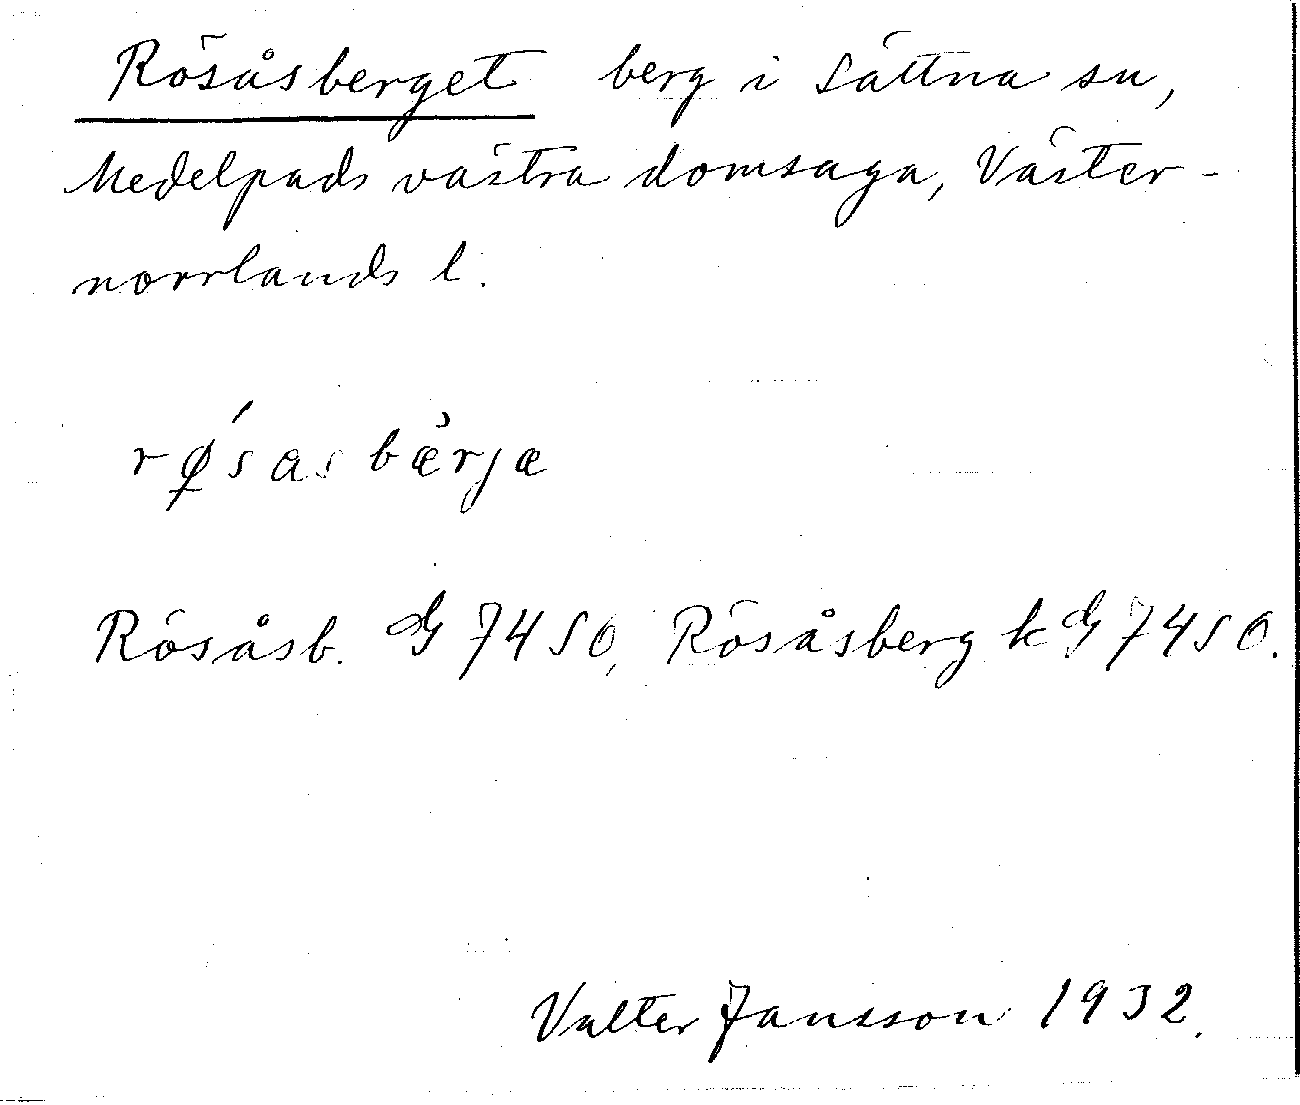 Rösåsberget berg i Sättna sn,
Medelpads västra domsaga, Väster-
norrlands l.
rø̀sasbærjæ
Rösåsb. G 7450, Rösåsberg k G 7450.
Valter Jansson 1932.